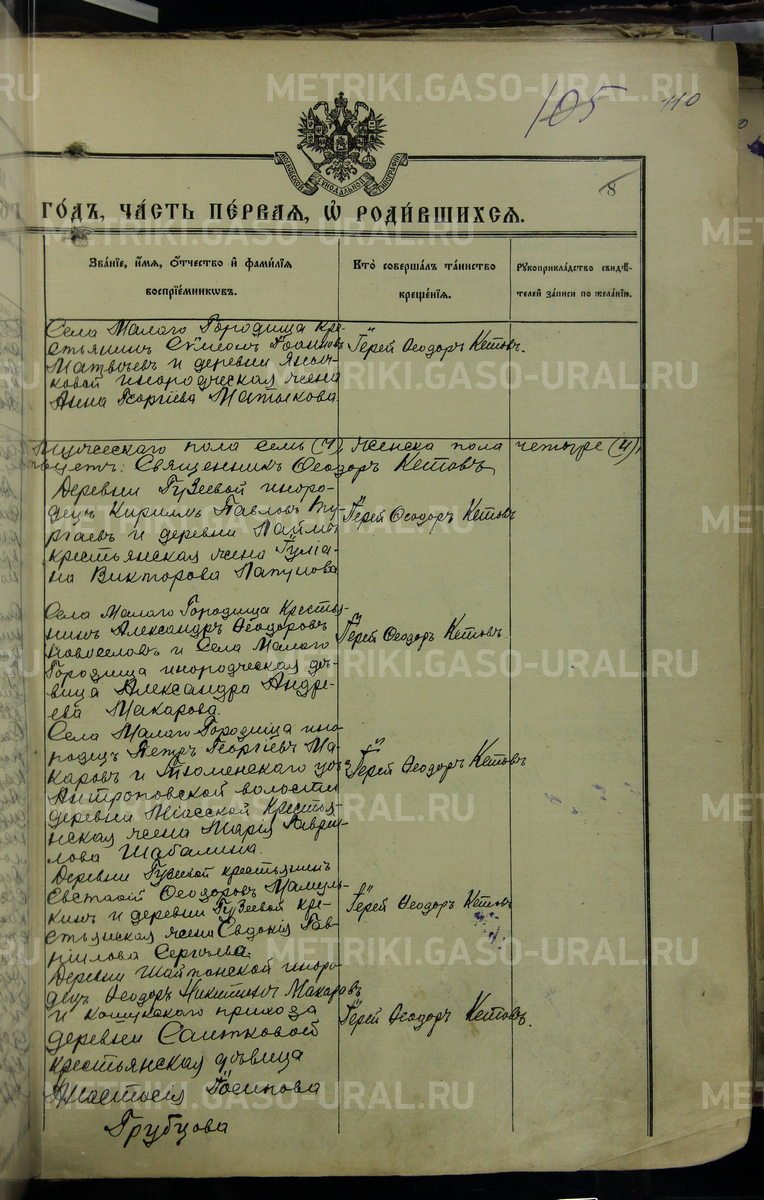 METRIKI.GASO-URAL.RU
105 110
8
ГО́ДЪ, ЧА́СТЬ ПЕ́РВАѦ, Ѡ҆ РОДИ́ВШИХСѦ.
Зва́нїе, и҆́мѧ, ѻ҆́тчество и҆ фами́лїѧ
воспрїе́мникѡвъ.
Кто̀ соверша́лъ та́инство
креще́нїѧ.
Рꙋкоприкла́дство свидѣ́-
телей за́писи по жела́нїю.
Села Малаго Городища кре-
стьянинъ Симеонъ Іоанновъ
Матвѣевъ и деревни Яныч-
ковой инородческая жена
Анна Георгіева Матькова
Іерей Ѳеодоръ Кетовъ.
Мужескаго пола семь (7), Женска пола четыре (4),
Священникъ Ѳеодоръ Кетовъ
Деревни Гузеевой иноро-
децъ Кириллъ Павловъ
и деревни
крестьянская жена Іуліа-
на Викторова Лапунова
Іерей Ѳеодоръ Кетовъ
Села Малаго Городища Крестья-
нинъ Александръ Ѳеодоровъ
Новоселовъ и Села Малаго
Городища инородческая дѣ-
вица Александра Андре-
ева Макарова.
Іерей Ѳеодоръ Кетовъ
Села Малаго Городища ино-
родецъ Петръ Георгіевъ Ма-
каровъ и Тюменскаго уѣз.
Антроповской волости
деревни Міасской Крестья-
нская жена Марія Гаври-
лова Шабалина.
Іерей Ѳеодоръ Кетовъ
Деревни Гузеевой крестьянинъ
Евстафій Ѳеодоровъ Мамуль-
кинъ и деревни Гузеевой кре-
стьянская жена Евдокія Гав-
риилова Сергеева.
Іерей Ѳеодоръ Кетовъ
Деревни Шайтанской иноро-
децъ Ѳеодоръ Никитинъ Макаровъ
и Кошукскаго прихода
деревни Саитковой
крестьянская дѣвица
Анастасія Іосипова
Грубцова
Іерей Ѳеодоръ Кетовъ.